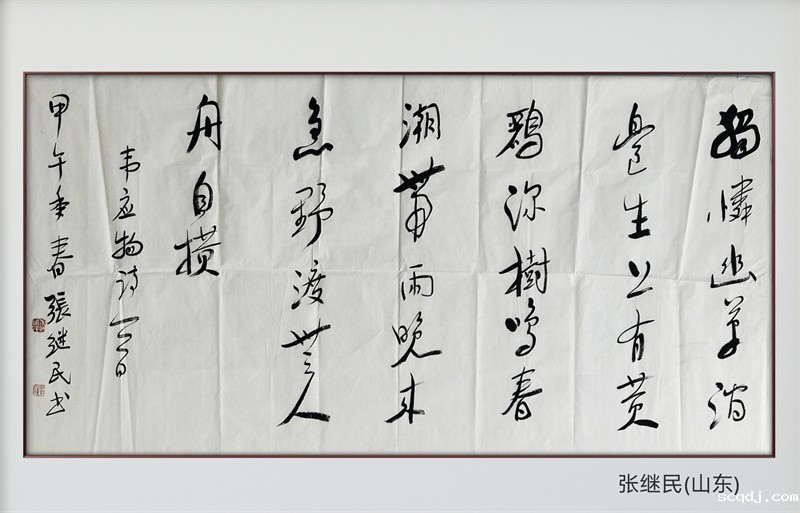 獨憐幽草澗
邊生上有黃
鸝深樹鳴春
潮帶雨晚來
急野渡無人
舟自横
韦应物詩一首
甲午年春 張继民书
张继民(山东)
scqdj.com